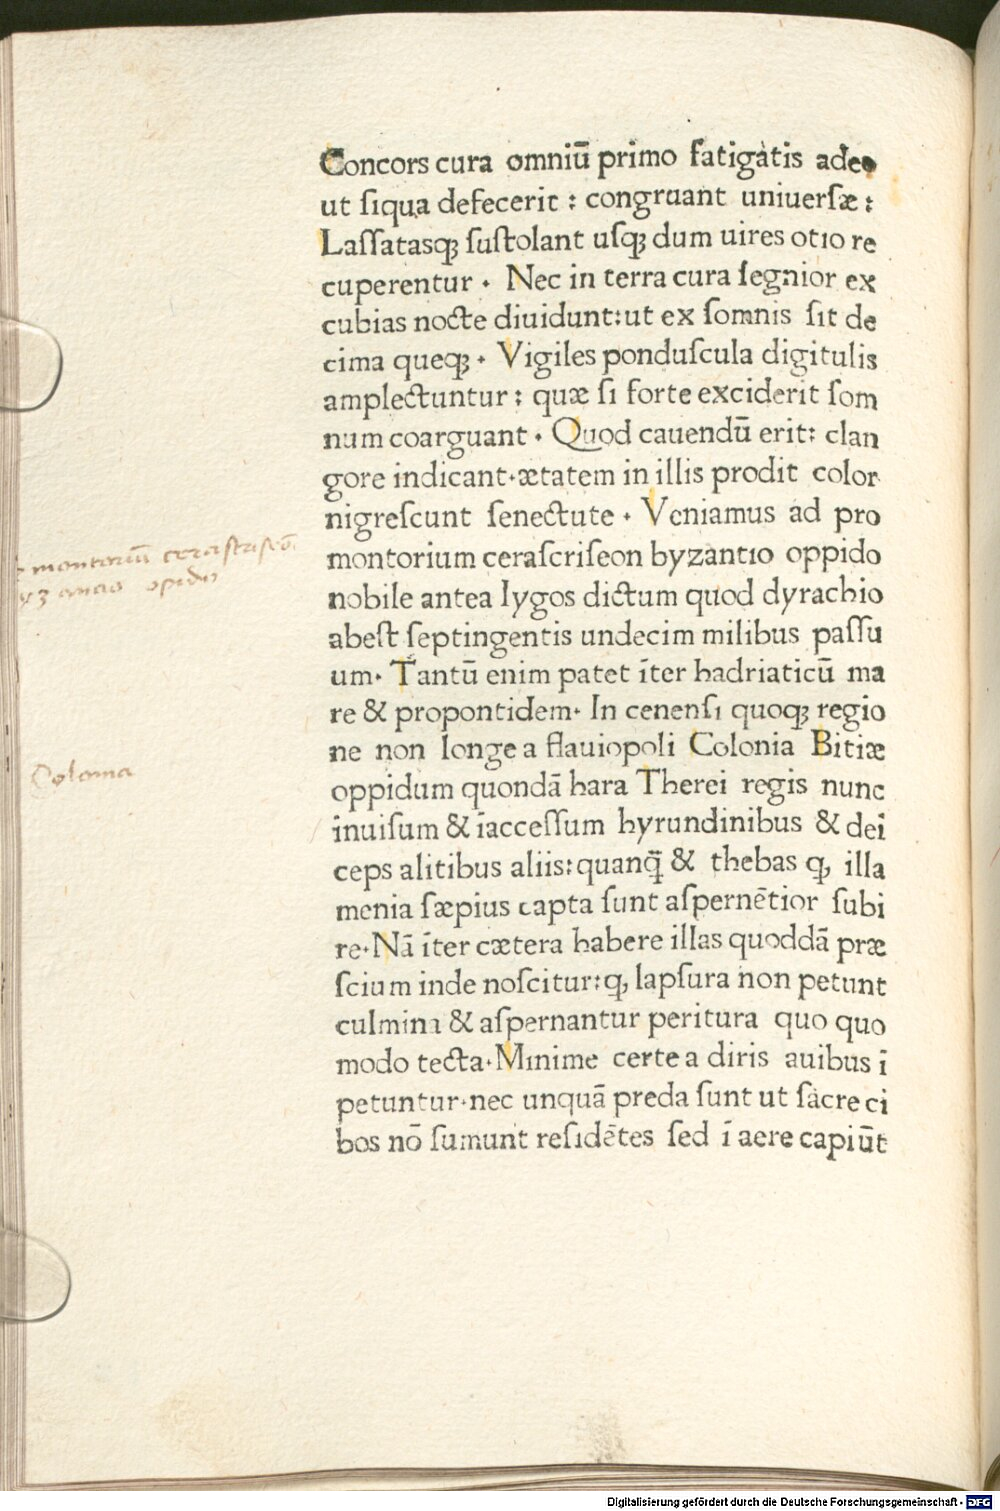 Concors cura omniū primo fatigatis adeo
ut ſiqua defecerit : congruant uniuerſæ :
Laſſatasqꝫ ſuſtolant uſqꝫ dum uires otio re
cuperentur · Nec in terra cura ſegnior ex
cubias nocte diuidunt:ut ex ſomnis ſit de
cima queqꝫ · Vigiles ponduſcula digitulis
amplectuntur : quæ ſi forte exciderit ſom
num coarguant · Quod cauendū erit: clan
gore indicant·ætatem in illis prodit color
nigreſcunt ſenectute · Veniamus ad pro
montorium ceraſcriſeon byzantio oppido
nobile antea lygos dictum quod dyrachio
abeſt ſeptingentis undecim milibus paſſu
um· Tantū enim patet īter hadriaticū ma
re & propontidem· In cenenſi quoqꝫ regio
ne non longe a flauiopoli Colonia Bitiæ
oppidum quondā hara Therei regis nunc
inuiſum & īacceſſum hyrundinibus & deī
ceps alitibus aliis:quanq̄ & thebas ꝙ illa
menia ſæpius capta ſunt aſpernētior ſubi
re·Nā īter cætera habere illas quoddā præ
ſcium inde noſcitur:ꝙ lapſura non petunt
culmina & aſpernantur peritura quo quo
modo tecta·Minime certe a diris auibus ī
petuntur·nec unquā preda ſunt ut ſacre ci
bos nō ſumunt reſidētes ſed ī aere capiūt
montoriū ceraſtriſeō
opidū
Colonia
Digitalisierung gefördert durch die Deutsche Forschungsgemeinschaft - DFG